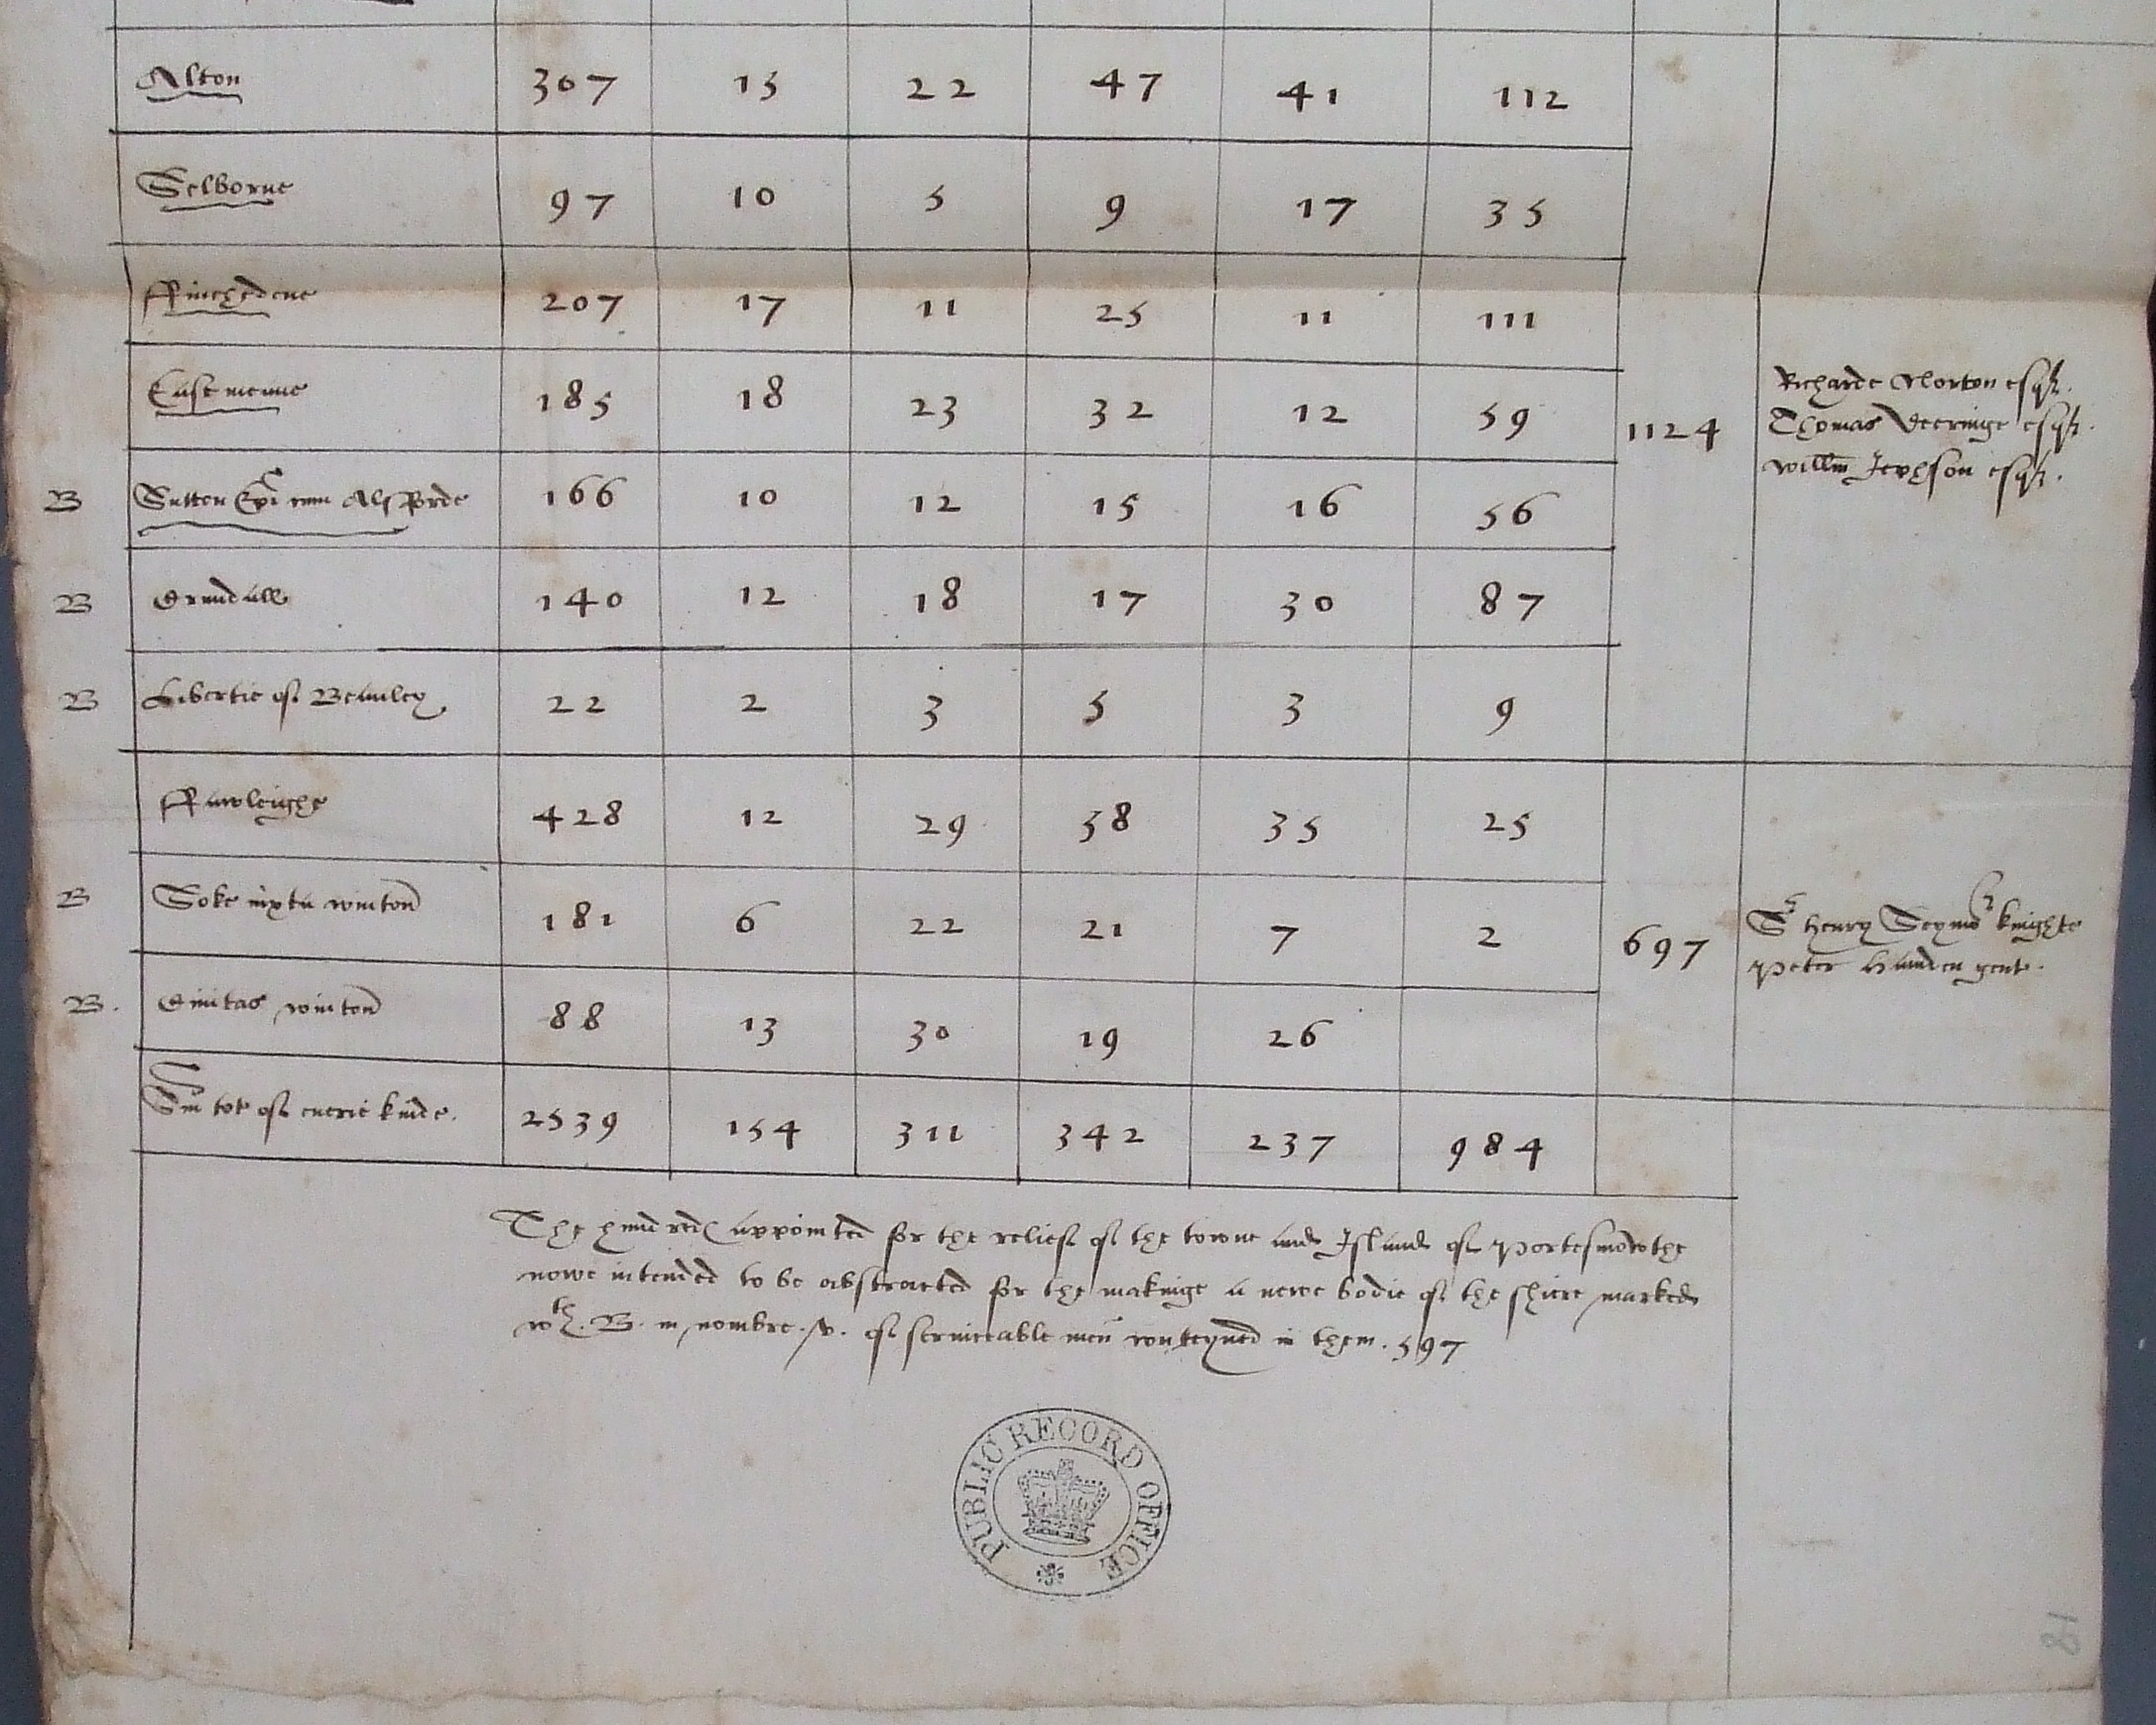 Alton 307 15 22 47 41 112
Selborne 97 10 5 9 17 35
ffinchedene 207 17 11 25 11 111
Eastmeane 185 18 23 32 12 59
1124
Richarde Norton esqr.
Thomas Deeringe esqr.
Willm Jephson esqr.
B Sutton Epi cum Alsforde 166 10 12 15 16 56
B Crundall 140 12 18 17 30 87
B Libertie of Beauley 22 2 3 5 3 9
ffawleighe 428 12 29 58 35 25
B Soke iuxta winton 181 6 22 21 7 2
697
Sr Henry Seymor knighte
Peter gent.
B. Ciuitas winton 88 13 30 19 26
Sm tot of euerie kinde. 2539 154 311 342 237 984
The hundreds appointed for the relief of the towne and Island of Portesmowthe
nowe intended to be abstracted for the makinge a newe bodie of the shiere marked
wth. B. in nombre .v. of serviceable men conteyned in them. 597
PUBLIC RECORD OFFICE
81